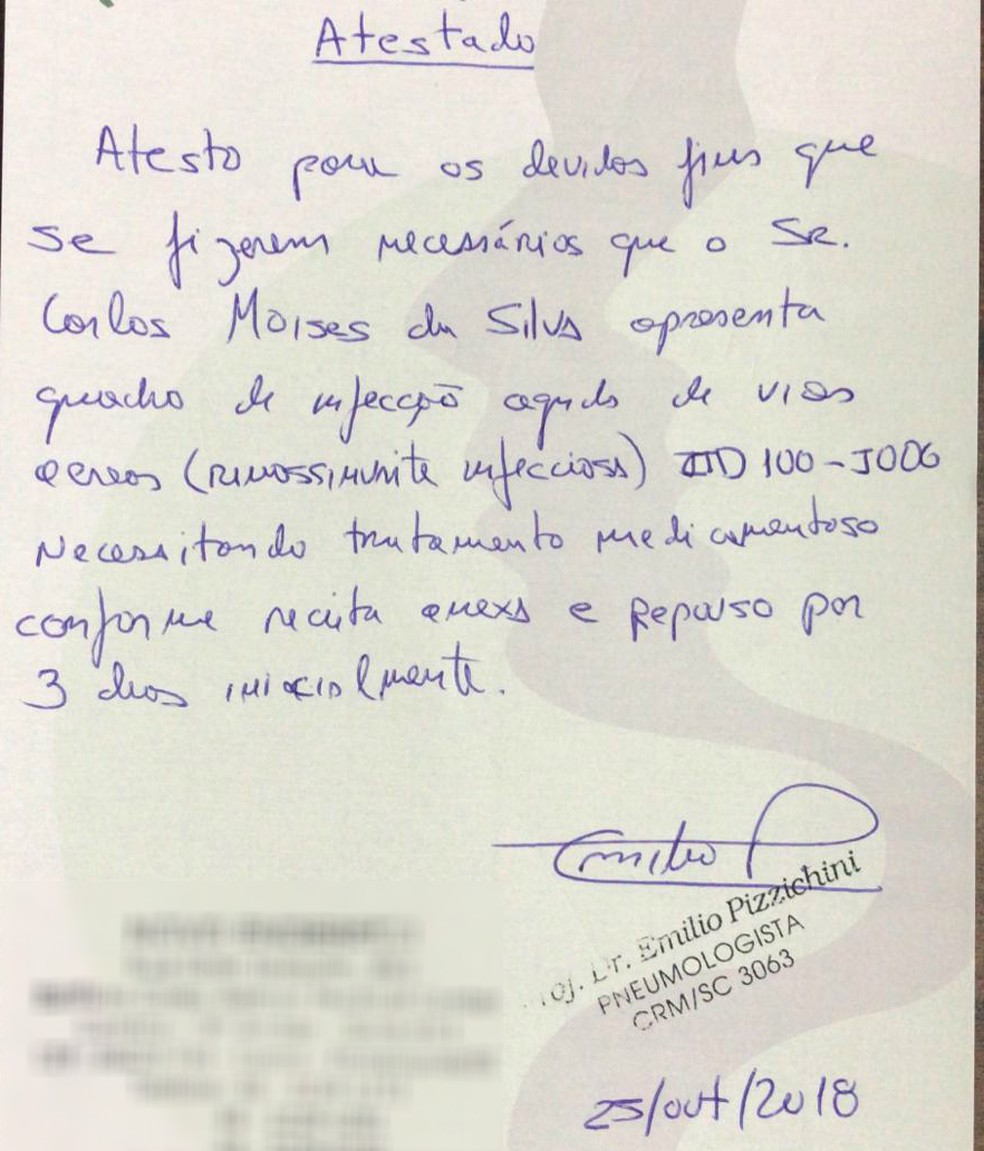 Atestado
Atesto para os devidos fins que
se fizerem necessários que o Sr.
Carlos Moises da Silva apresenta
quadro de infecção aguda de vias
aereas (rinossinusite infecciosa) CID 100-J006
Necessitando tratamento medicamentoso
conforme receita anexa e Repouso por
3 dias inicialmente.
Emilio P
Prof. Dr. Emilio Pizzichini
PNEUMOLOGISTA
CRM/SC 3063
25/out/2018